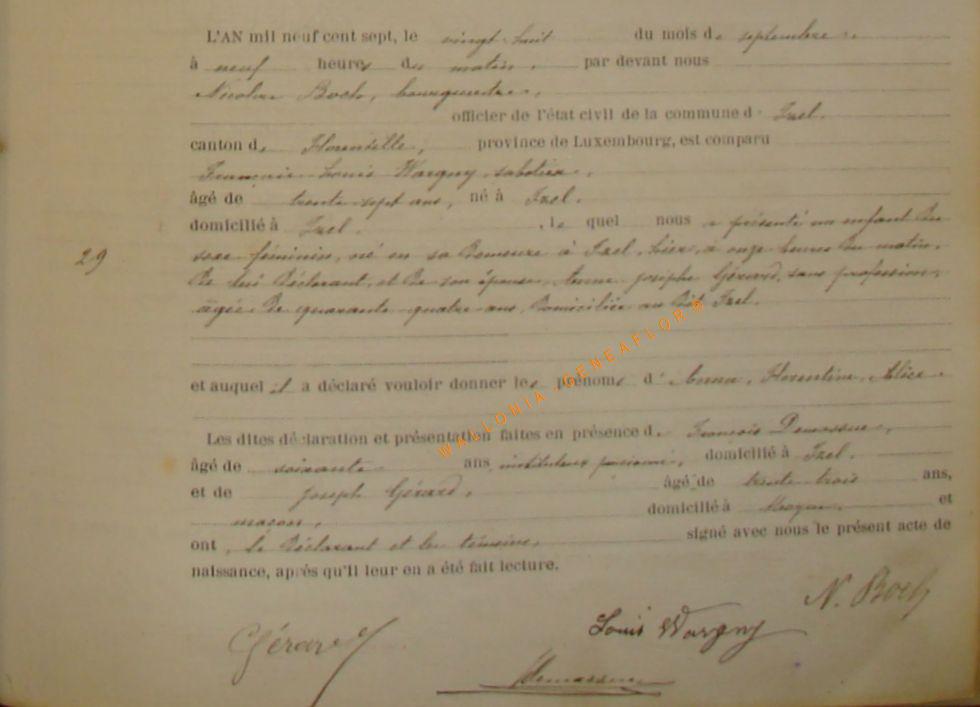 L'AN mil neuf cent sept, le vingt-huit du mois de septembre
à neuf heures du matin, par devant nous
Nicolas Boch, bourgmestre,
officier de l'état civil de la commune d' Izel.
canton de Florenville, province de Luxembourg, est comparu
François Louis Wargny, sabotier,
âgé de trente-sept ans, né à Izel.
domicilié à Izel. , lequel nous a présenté un enfant du
29
sexe féminin, né en sa demeure à Izel, hier, à onze heures du matin,
de lui déclarant, et de son épouse, Anne Josèphe Gérard, sans profession,
âgée de quarante-quatre ans, domiciliée au dit Izel.
et auquel il a déclaré vouloir donner les prénoms d' Anna, Florentine, Alice.
WALLONIA.GENEAFLOR©
Les dites déclaration et présentation faites en présence de François
âgé de soixante ans, instituteur pensionné, domicilié à Izel.
et de Joseph Gérard, âgé de trente trois ans,
maçon, domicilié à et
ont, le déclarant et les témoins, signé avec nous le présent acte de
naissance, après qu'il leur en a été fait lecture.
N. Boch
Louis Wargny
Gérard